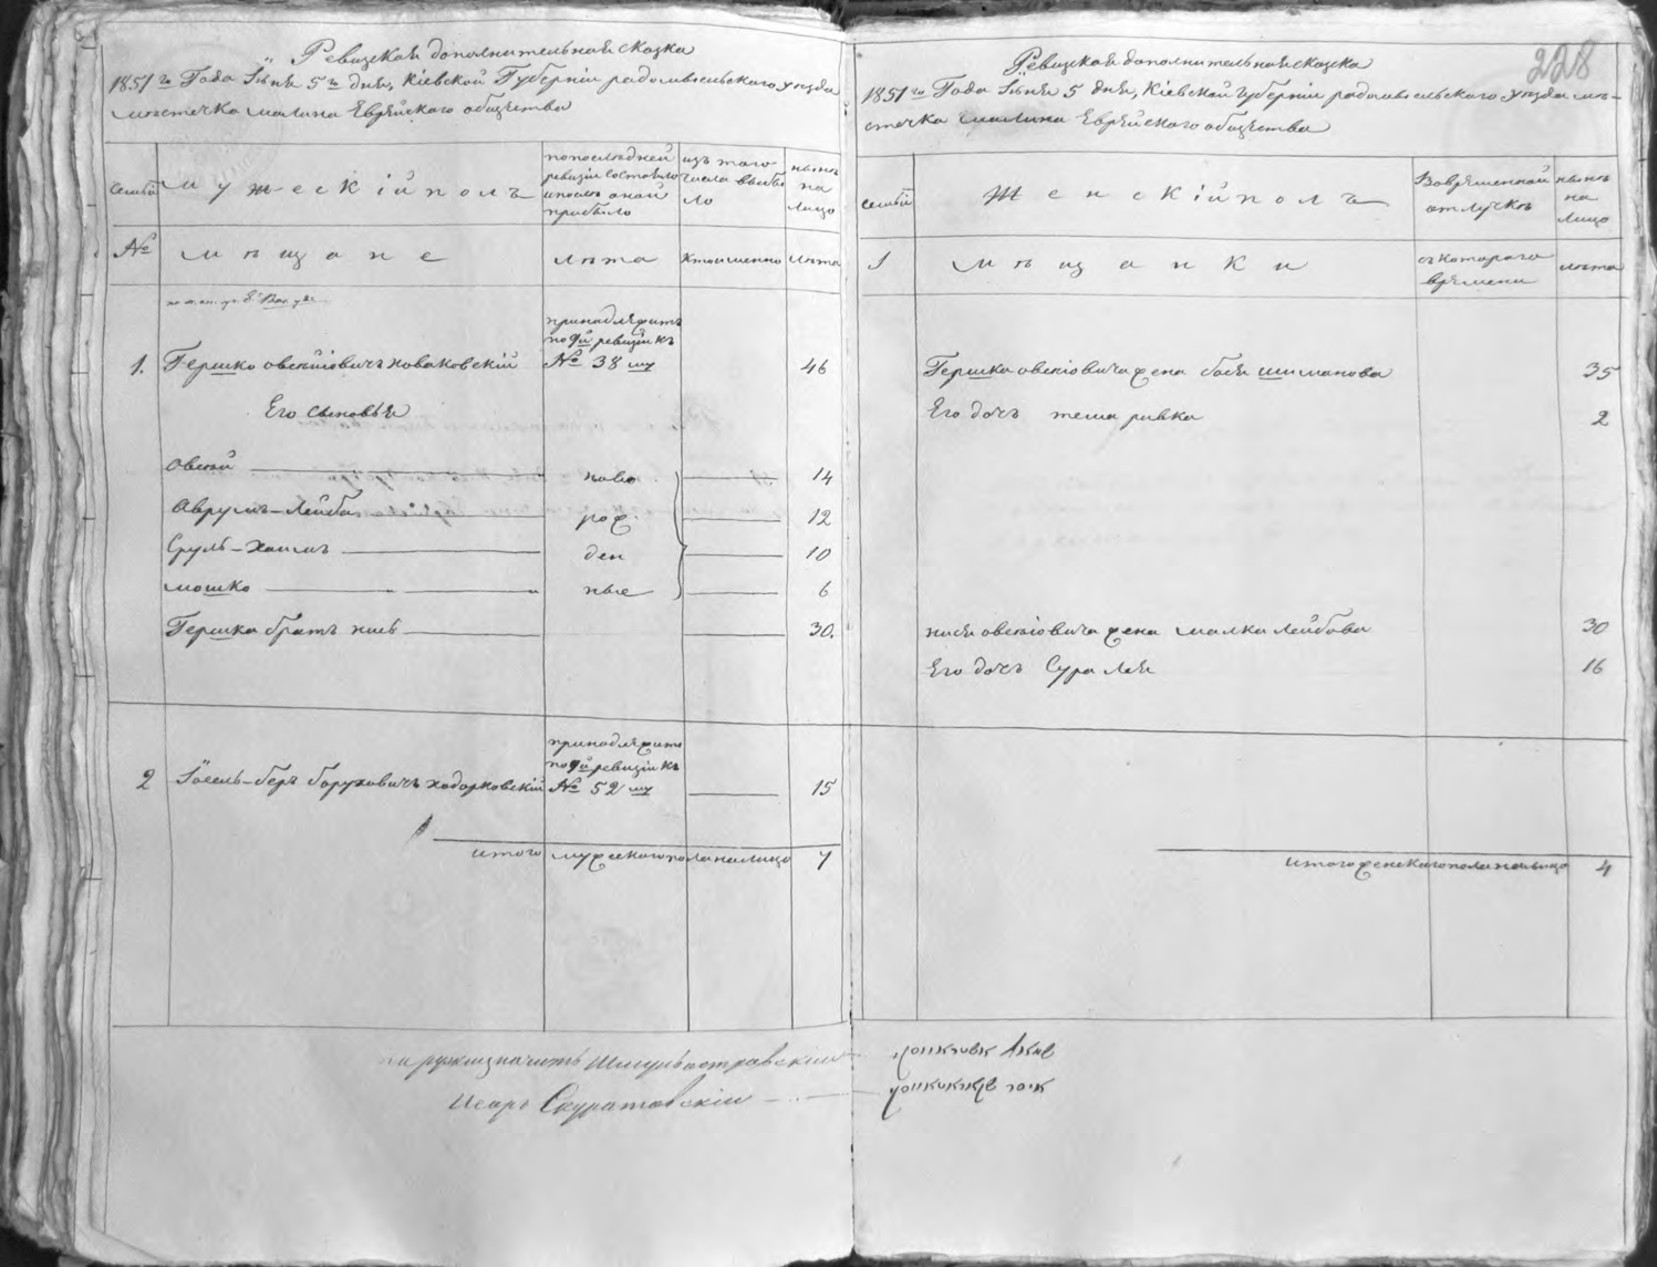 Ревизская дополнительная сказка
1851го Года Іюня 5го дня, Кіевской Губерніи радомысльского уезда
местечка малина Еврейского общества
Семьи
Мужескій полъ
по последней ревизіи состояло и после оной прибыло
изъ того числа выбыло
ныне на лицо
№
мещане
лета
Кто именно
лета
1.
Гершко овсеіовичъ новаковскій
принадлежитъ по 9й ревизіи къ № 38 му
46
Его сыновья
овсей
ново
14
Аврумъ-Лейба
рож
12
Сруль-хаимъ
ден
10
мошко
ные
6
Гершка братъ
30.
2
Іосель-беръ боруховичъ ходорковскій
принадлежитъ по 9й ревизіи къ № 52 му
15
итого мужескаго пола налицо 7
Исаръ Скуратовскій
228
Ревизская дополнительная сказка
1851го Года Іюня 5 дня, Кіевской Губерніи радомысльского уезда ме-
стечка малина Еврейского общества
Семьи
Женскій полъ
Во временной отлучке
ныне на лицо
1
мещанки
съ которого времени
лета
Гершка овсеіовича жена бася шимонова
35
Его дочь тема ривка
2
нися овсеіовича жена малка лейбова
30
Его дочь Сура Лея
16
итого женскаго пола налицо 4